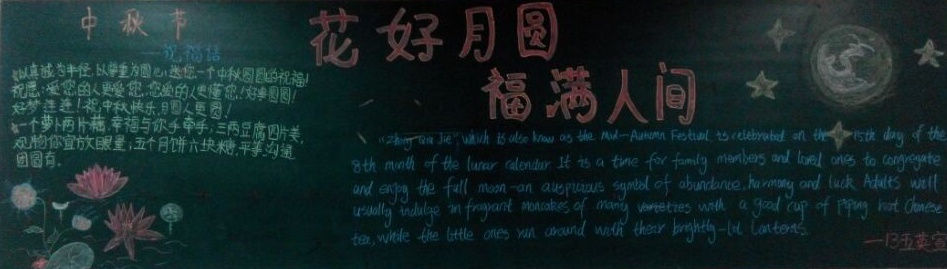 中秋节
—祝福语
以真诚为半径,以尊重为圆心,送您一个中秋圆圆的祝福!
祝愿:爱您的人更爱您,您爱的人更懂您!好事圆圆!
好梦连连!祝中秋快乐,月圆人更圆!
一个萝卜两片藕,幸福与你手牵手,三两豆腐四片姜,
观物你宜放眼量,五个月饼六块糖,平美沟通
团圆有。
花好月圆
福满人间
"Zhong Qiu Jie", which is also know as the mid-Autumn Festival is celebrated on the 15th day of the
8th minth of the lunar calendar It is a time for family members and loved ones to congregate
and enjoy the full moon-an auspicious symbol of abundance, harmony and luck Adults will
usually indulge in fragrant mooncakes of many varieties with a good cup of piping hot Chinese
tea, while the little ones run around with their brightly-lit lanterns.